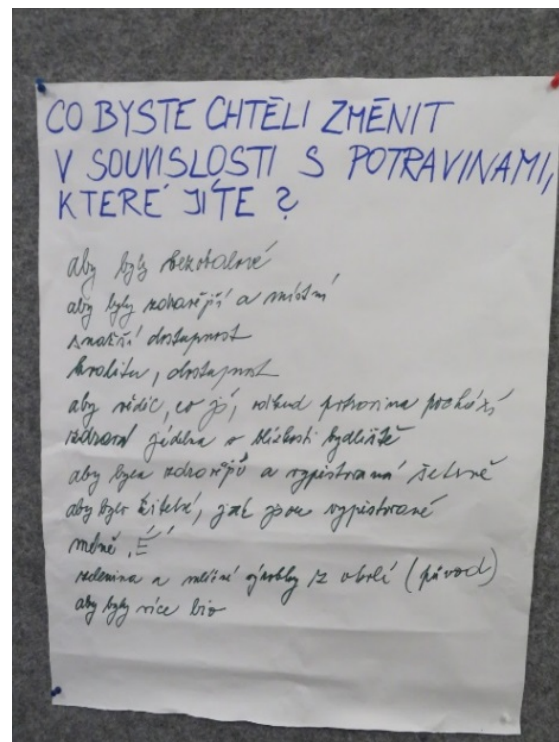 CO BYSTE CHTĚLI ZMĚNIT
V SOUVISLOSTI S POTRAVINAMI,
KTERÉ JÍTE ?
aby byly bezobalové
aby byly zdravější a místní
snazší dostupnost
kvalitu, dostupnost
aby vědět, co jí, odkud potravina pochází
zdravá jídelna v blízkosti bydliště
aby byla zdravější a vypěstovaná šetrně
aby bylo čitelné, jak jsou vypěstované
méně „É"
zelenina a mléčné výrobky z okolí (původ)
aby byly více bio